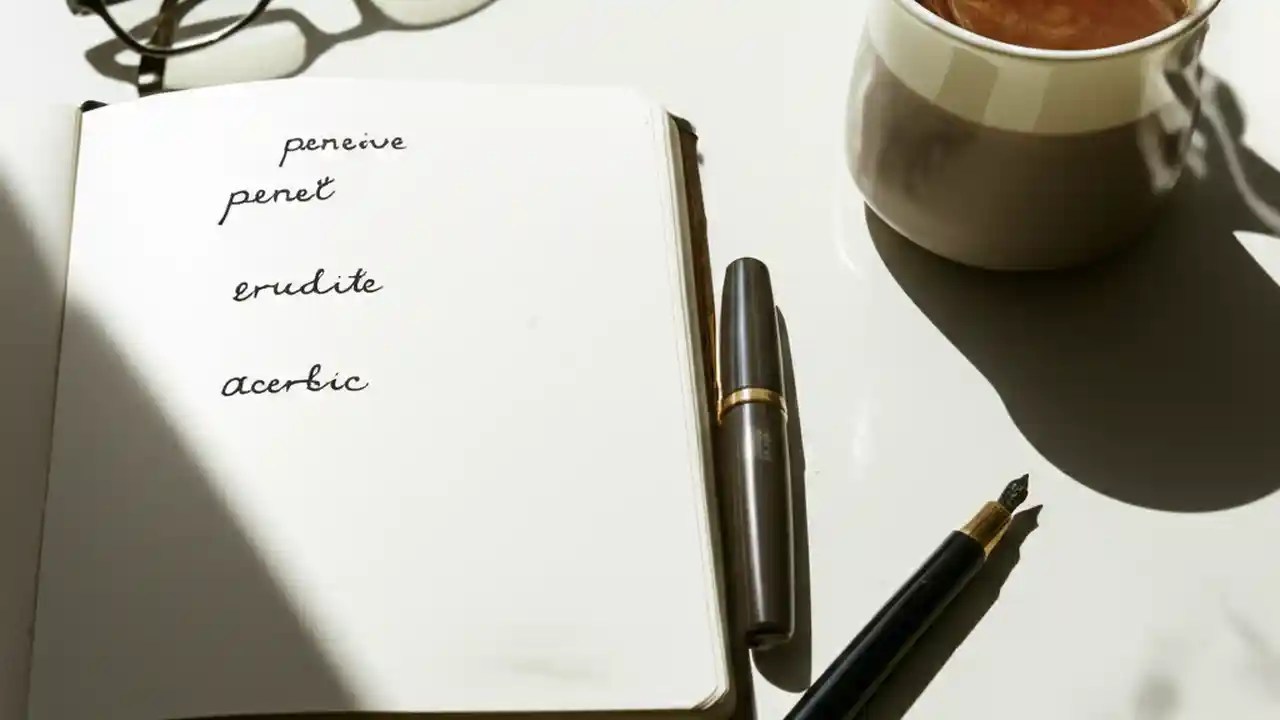 peneive
penet
erudite
acerbic